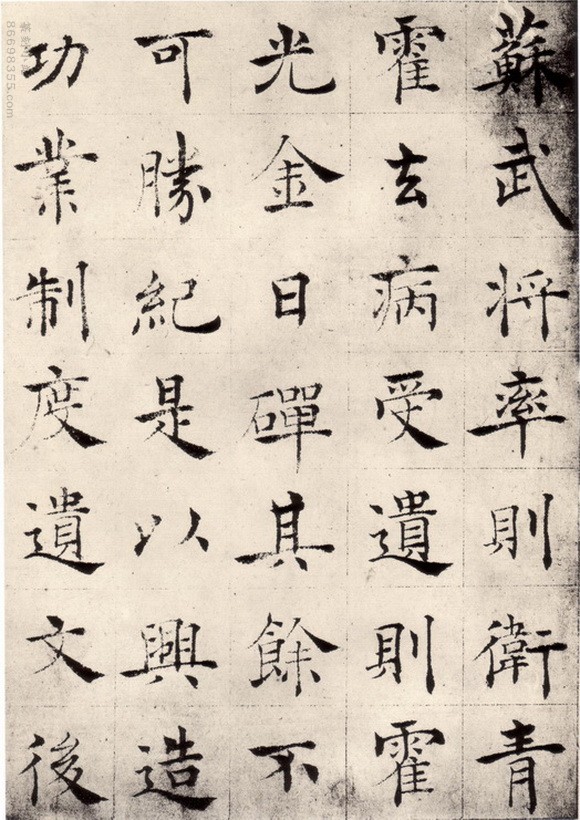 蘇武將率則衛青
霍去病受遺則霍
光金日磾其餘不
可勝紀是以興造
功業制度遺文後
86698355.com